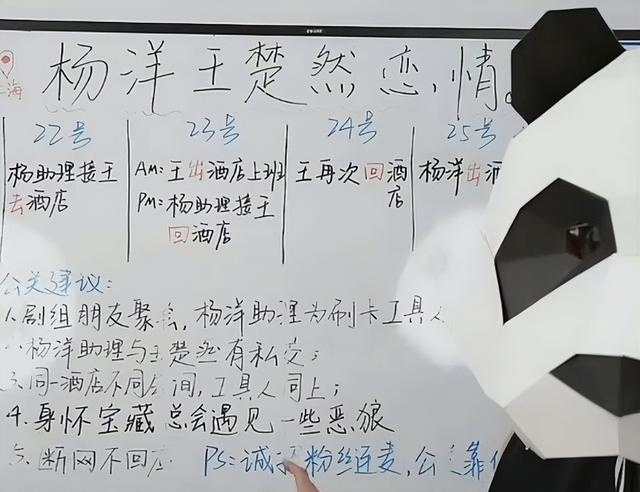 海
杨洋王楚然恋情。
22号
杨助理接王
去酒店
23号
AM:王出酒店上班
PM:杨助理接王
回酒店
24号
王再次回酒
店
25号
杨洋出酒
公关建议:
1.剧组朋友聚会,杨洋助理为刷卡工具人
杨洋助理与王楚然有私交;
同一酒店不同房间,工具人同上;
4.身怀宝藏总会遇见一些恶狼
断网不回应
PS:诚 粉丝连麦,公关靠